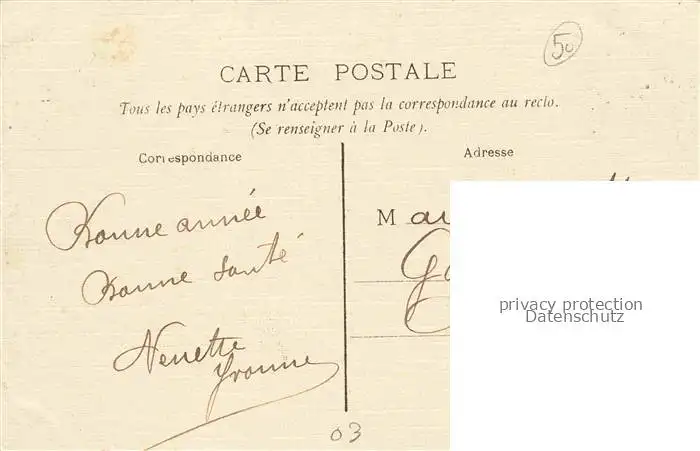 50
CARTE POSTALE
Tous les pays étrangers n'acceptent pas la correspondance au recto.
(Se renseigner à la Poste).
Correspondance
Adresse
Bonne année
Bonne santé
Nenette
Yvonne
M
privacy protection
Datenschutz
03